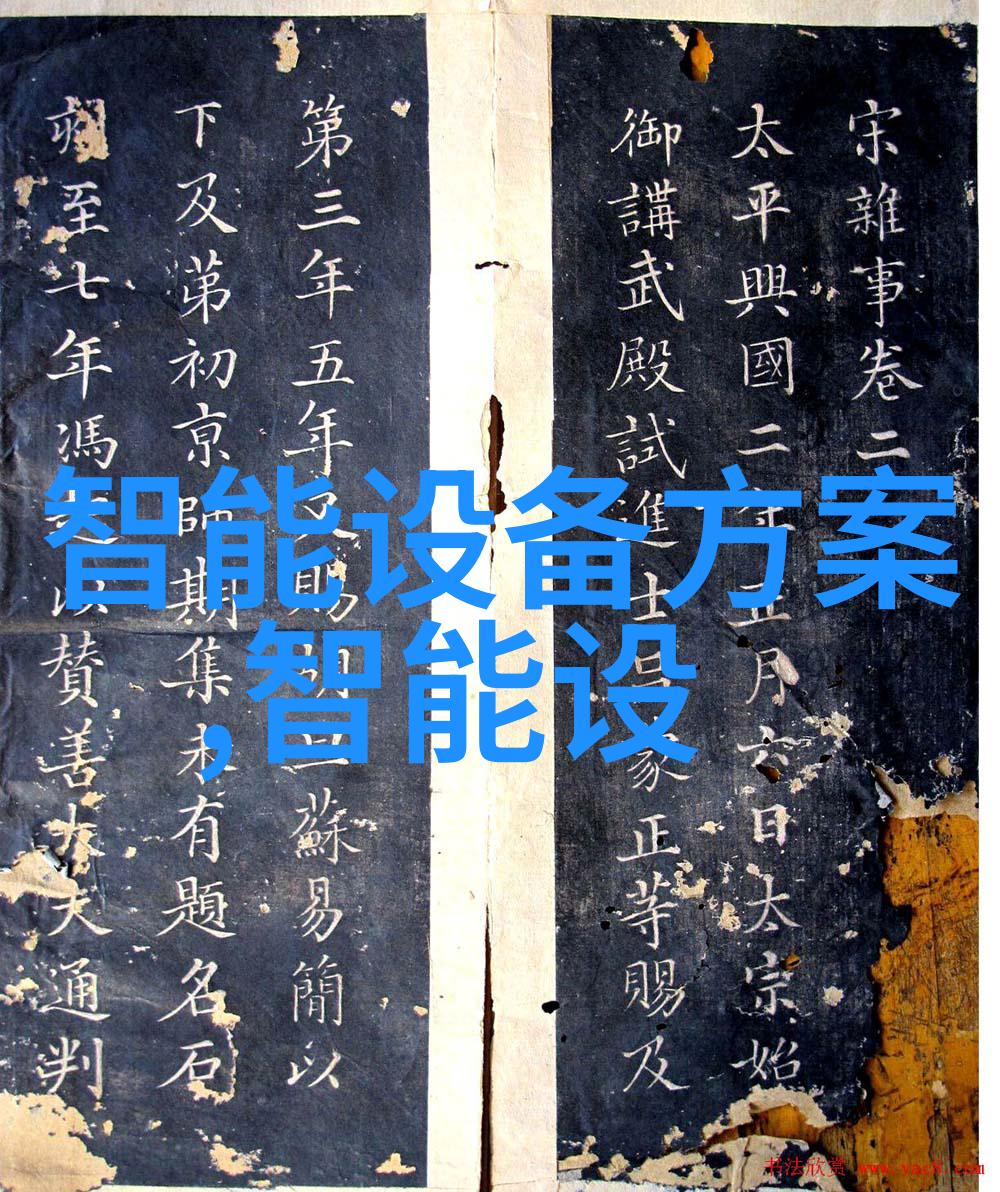 宋雜事卷二
太平興國二年正月六日太宗始
御講武殿試進士呂蒙正等賜及
第三年五年又賜胡旦蘇易簡以
下及苐初京師期集未有題名石
至七年馮以贊善大夫通判
智能设备方案
,智能设
书法欣赏 www.yac8.com